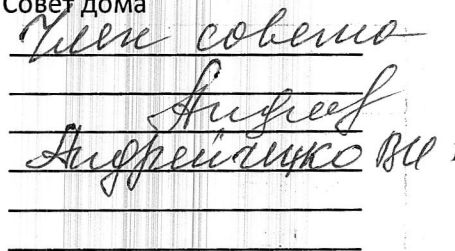 Совет дома
Член совета
Андрейчико ВИ